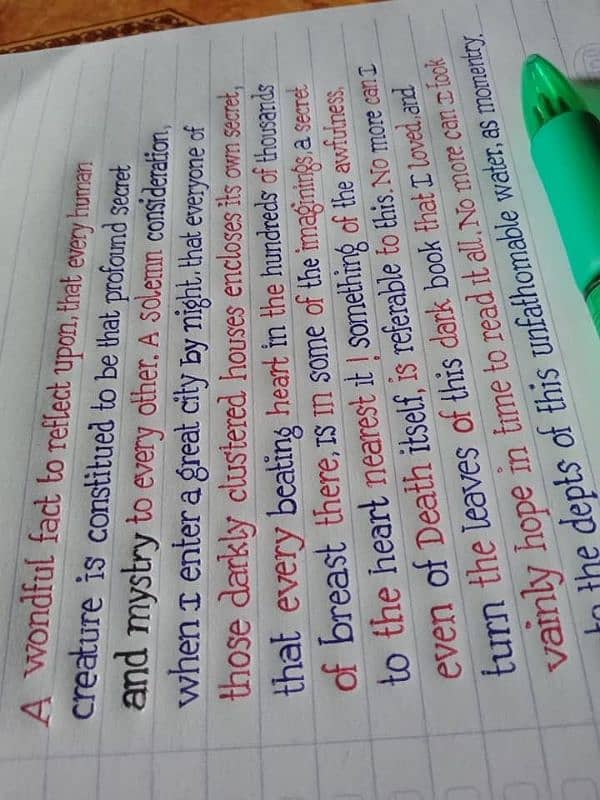 A wondful fact to reflect upon, that every human
creature is constitued to be that profound secret
and mystry to every other. A solemn consideration,
when I enter a great city by night, that everyone of
those darkly clustered houses encloses its own secret,
that every beating heart in the hundreds of thousands
of breast there, is in some of the imaginings, a secret
to the heart nearest it! something of the awfulness,
even of Death itself, is referable to this. No more can I
turn the leaves of this dark book that I loved, and
vainly hope in time to read it all. No more can I look
to the depts of this unfathomable water, as momentry